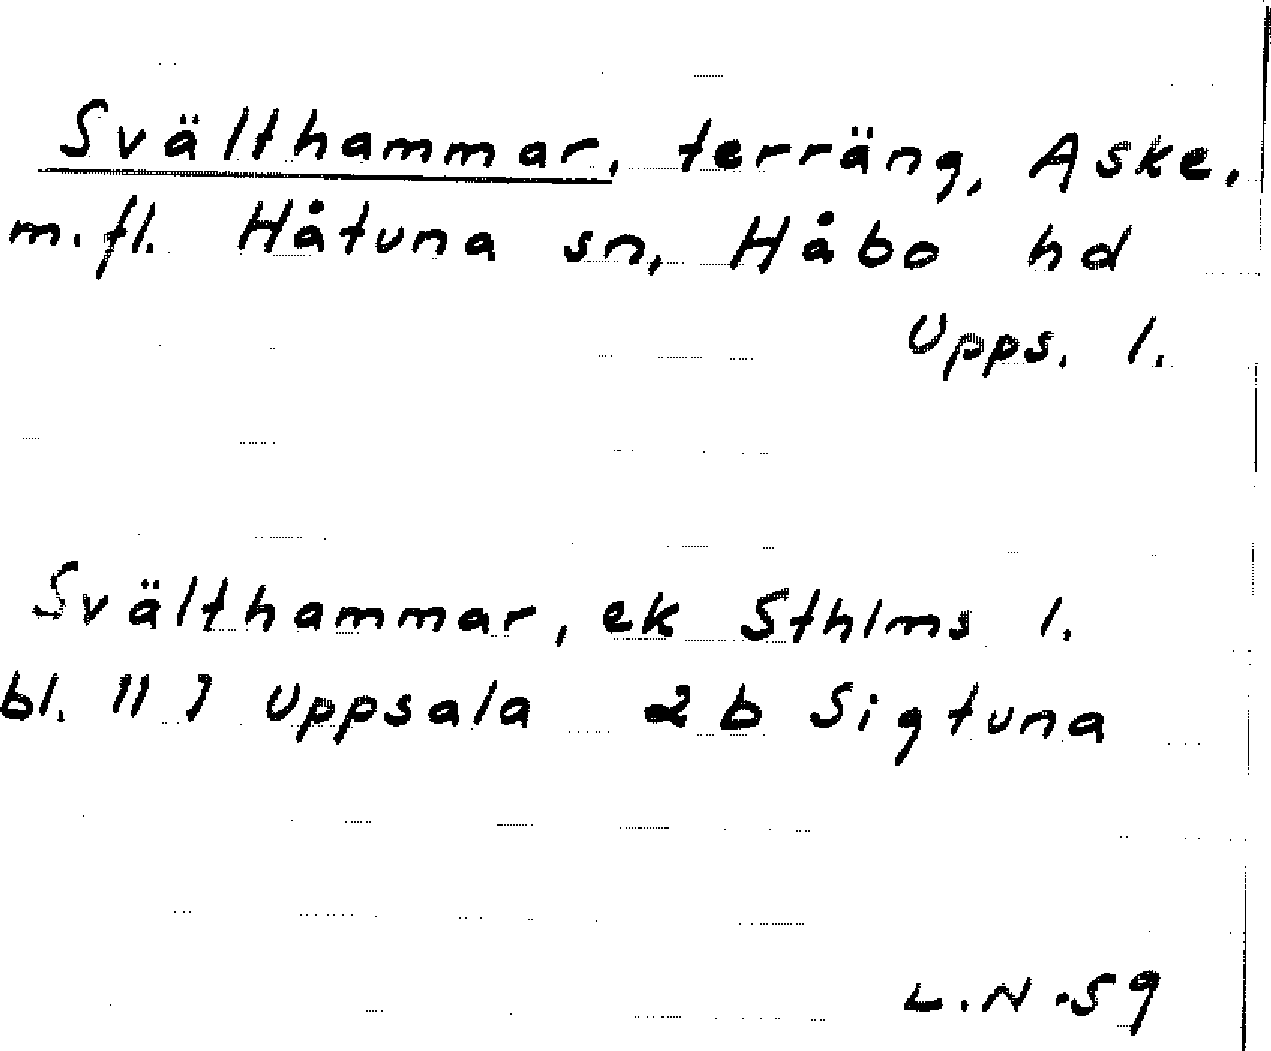 Svälthammar, terräng, Aske,
m.fl. Håtuna sn, Håbo hd
Upps. l.
Svälthammar, ek Sthlms l.
bl. 11 I Uppsala 2 b Sigtuna
L.N.59